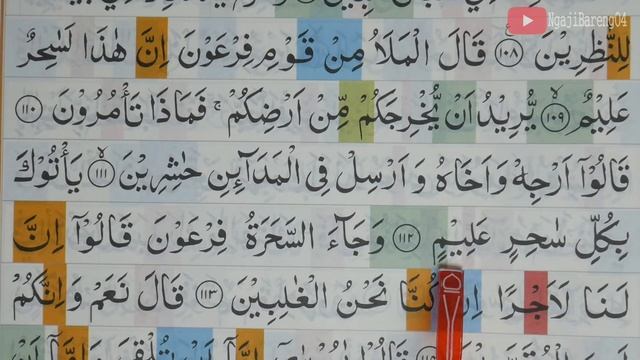 NgajiBareng04
لِلنّٰظِرِيْنَ ۝١٠٨ قَالَ الْمَلَاُ مِنْ قَوْمِ فِرْعَوْنَ اِنَّ هٰذَا لَسٰحِرٌ
عَلِيْمٌ ۝١٠٩ يُّرِيْدُ اَنْ يُّخْرِجَكُمْ مِّنْ اَرْضِكُمْ ۚ فَمَاذَا تَأْمُرُوْنَ ۝١١٠
قَالُوْٓا اَرْجِهْ وَاَخَاهُ وَاَرْسِلْ فِى الْمَدَاۤئِنِ حٰشِرِيْنَ ۝١١١ يَأْتُوْكَ
بِكُلِّ سٰحِرٍ عَلِيْمٍ ۝١١٢ وَجَاۤءَ السَّحَرَةُ فِرْعَوْنَ قَالُوْٓا اِنَّ
لَنَا لَاَجْرًا اِنْ كُنَّا نَحْنُ الْغٰلِبِيْنَ ۝١١٣ قَالَ نَعَمْ وَاِنَّكُمْ